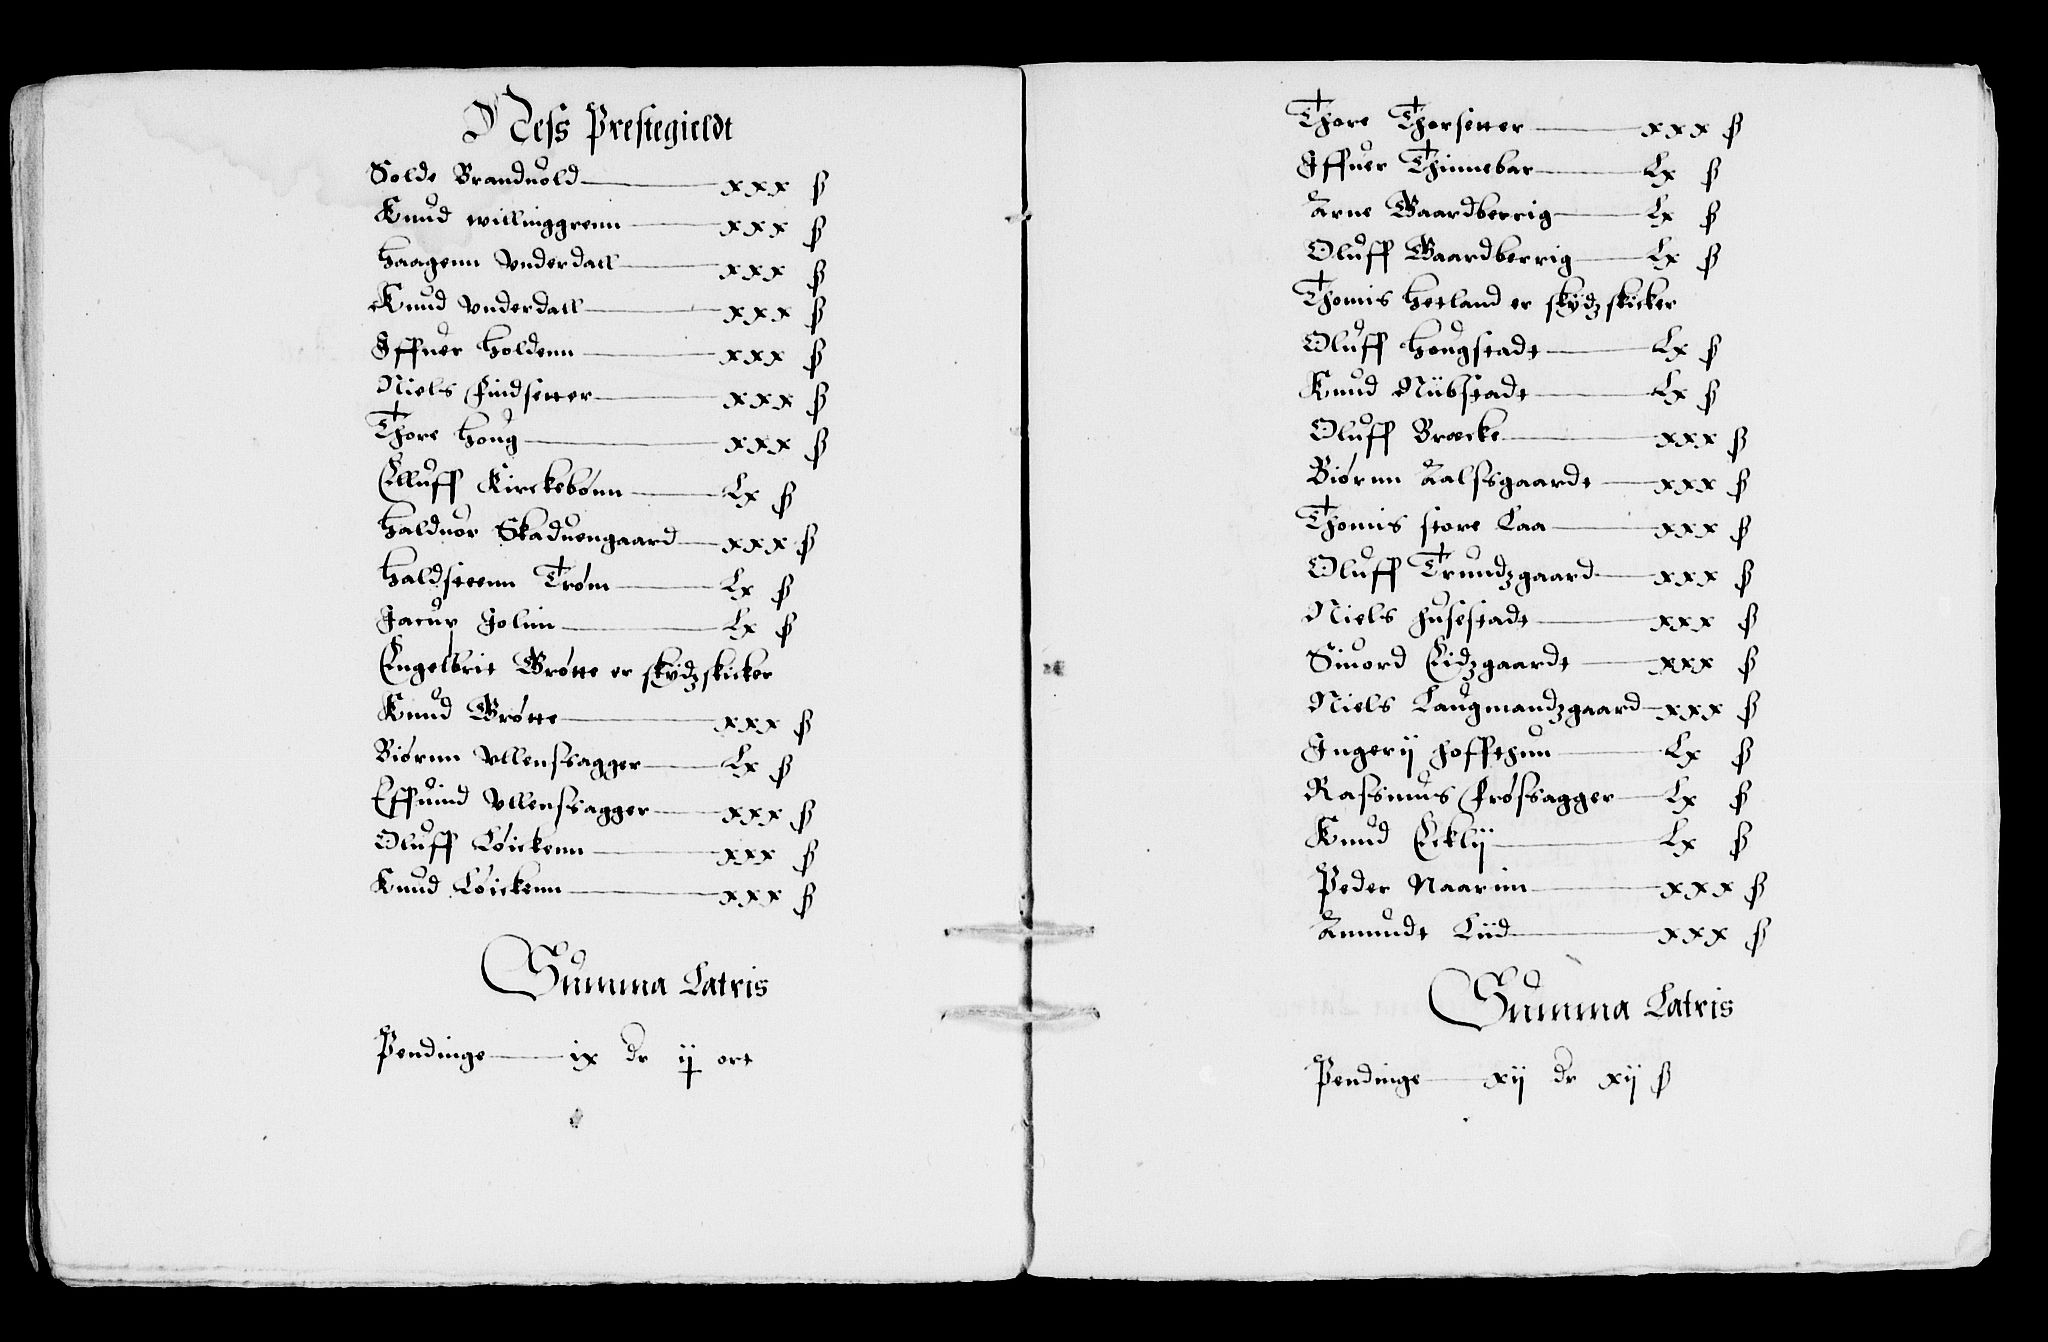 Ness Prestegieldt
Solde Branduold xxx ß
Knud willinggrenn xxx ß
Haagenn Vnderdall xxx ß
Knud Vnderdall xxx ß
Iffuer Holdenn xxx ß
Niels Findsetter xxx ß
Thore Houg xxx ß
Elluff Kirckebönn Lx ß
Halduor Skaduengaard xxx ß
Haldsteenn Tröm Lx ß
Jacup Jolim Lx ß
Engelbrit Brötte er skydz skicker
Knud Brötte xxx ß
Biörnn Vllenssagger Lx ß
Effuind Vllenssagger xxx ß
Oluff Löickenn xxx ß
Knud Löickenn xxx ß
Summa Latris
Pendinge ix dr ij ort
Thore Thorsetter xxx ß
Iffuer Thinnebar Lx ß
Arne Gaardberrig Lx ß
Oluff Gaardberrig Lx ß
Thomis Hetland er skydz skicker
Oluff Hougstadt Lx ß
Knud Nubstadt Lx ß
Oluff Bræcke xxx ß
Biörnn Aalssgaardt xxx ß
Thomis store Laa xxx ß
Oluff Trundzgaard xxx ß
Niels Husestadt xxx ß
Siuord Eidzgaardt xxx ß
Niels Laugmandzgaard xxx ß
Ingerij Hoffthun Lx ß
Rassmus Frössagger Lx ß
Knud Ecklij Lx ß
Peder Naarim xxx ß
Amundt Liid xxx ß
Summa Latris
Pendinge xij dr xij ß